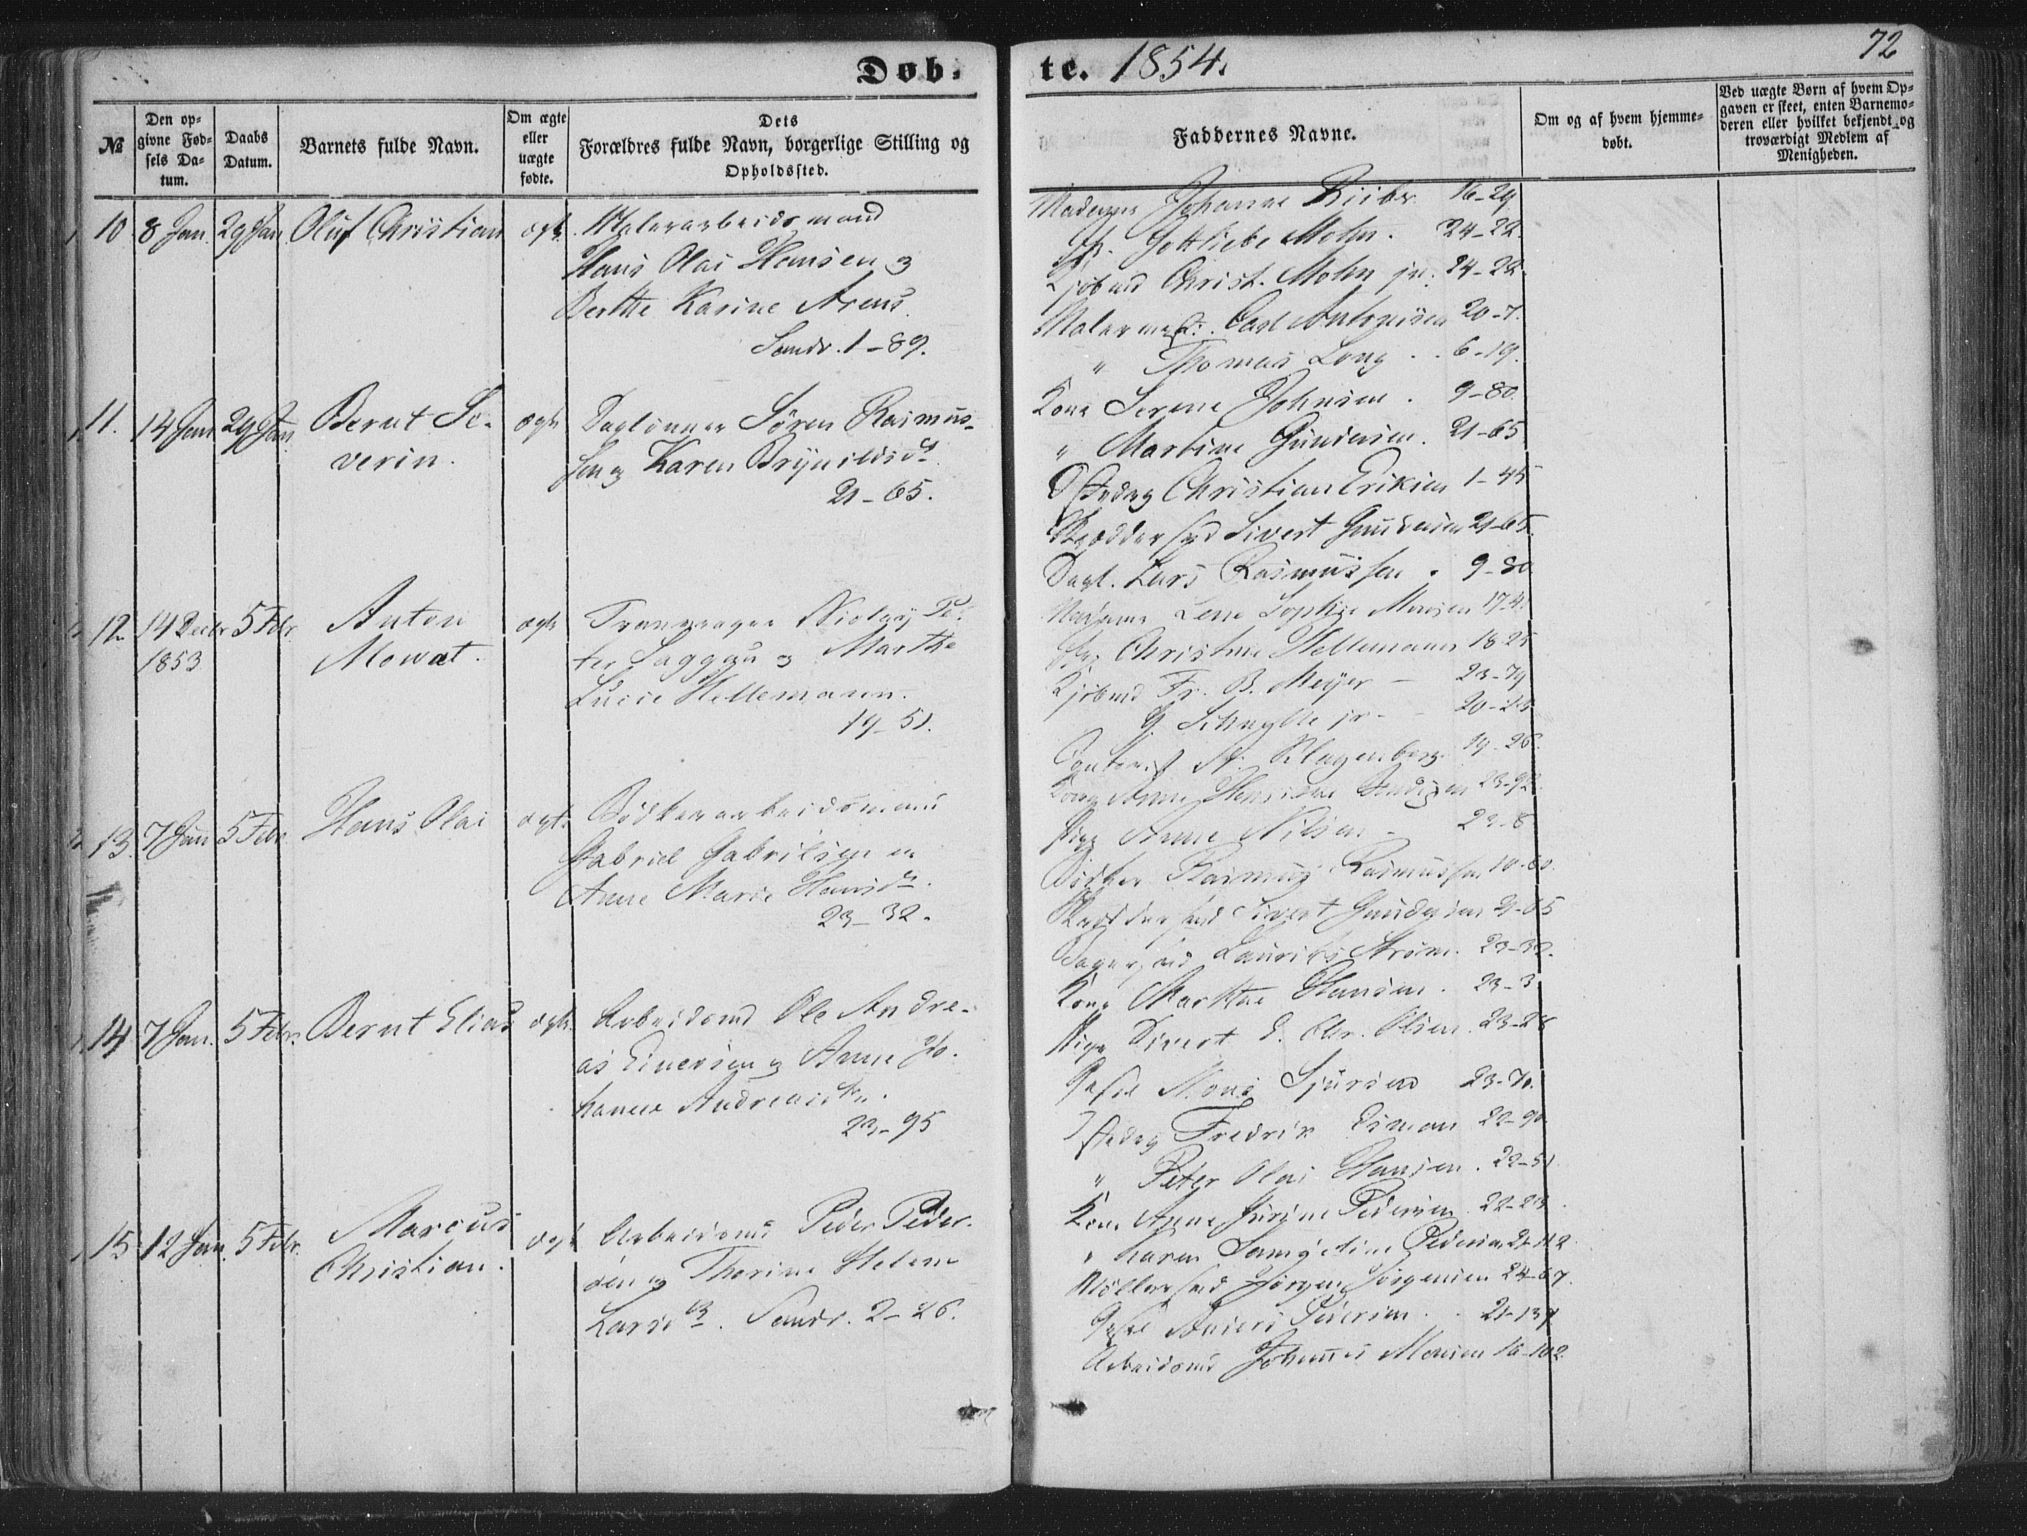 Døb-
te. 1854.
72
№
Den op-
givne Fød-
sels Da-
tum.
Daabs
Datum.
Barnets fulde Navn.
Om ægte
eller
uægte
fødte.
Dets
Forældres fulde Navn, borgerlige Stilling og
Opholdssted.
Faddernes Navne.
Om og af hvem hjemme-
døbt.
Ved uægte Børn af hvem Op-
gaven er skeet, enten Barnemo-
deren eller hvilket bekjendt og
troværdigt Medlem af
Menigheden.
10 8 Jan. 29 Jan Oluf Christian ægte Malerarbeidsmand
Hans Olai Hansen og
Berthe Karine Arens
Sandv. 1-89.
Madame Johanne Riiber 16-29
Jfr. Gottliebe Mohn. 24-22.
Kjøbmd Christ. Mohn jr. 24-22.
Malermest. Carl Antonisen 20-7.
" Thomas Long . . 6-19.
11. 14 Jan 29 Jan Bernt Se-
verin.
ægte Daglønner Søren Rasmus-
sen og Karen Brynildsdt.
21-65.
Kone Serene Johnsen . 9-80.
" Martine Gundersen. 21-65
Christian Eriksen 1-45
Skrædder Sivert Gundersen 21-65.
Dagl. Lars Rasmussen . 9-80
12. 14 Decbr 5 Febr. Anton
1853 Mowat.
ægte Nicolay Pe-
ter Saggau og Marthe
Lucie Hellemann.
19-51.
Madame Lene Sophie Monsen 17-4.
Jfr. Christine Hellemann 18-25
Kjøbmd Fr. B. Meyer - 23-79
20-25
Contorist Klagenberg 19-26.
13. 7 Jan 5 Febr. Hans Olai ægte Bødkerarbeidsmand
Gabriel Gabrielsen og
Anne Marie Hansdt.
23-32.
Kone Anne 23-92.
Pige Anne Nilsen - 23-8
Bødker Rasmus Rasmussen 10-60.
Sivert Gundersen 21-65
Laurits Strøm. 23-32.
14 7 Jan. 5 Febr. Bernt Elias ægte Arbeidsmd Ole Andre-
as Einersen og Anne Jo-
hanne Andreasdt.
23-95
Kone Marthe Hansen . 23-3
Pige Sivert Olsen. 23-26
Mons Sjursen 23-70.
Fredrik Simon 22-90
" Peter Olai Hansen . 22-51
15 12 Jan 5 Febr. Marcus
Christian.
ægte Arbeidsmd Peder Peder-
sen og Thorine Helene
Larsdt. Sandv. 2-26.
Kone Anne Pedersen 22-23.
" Karen Pedersen
Møllersvd Jørgen Jørgensen 24-67.
Pedersen . . 21-137
Arbeidsmd Johannes Monsen 16-102.